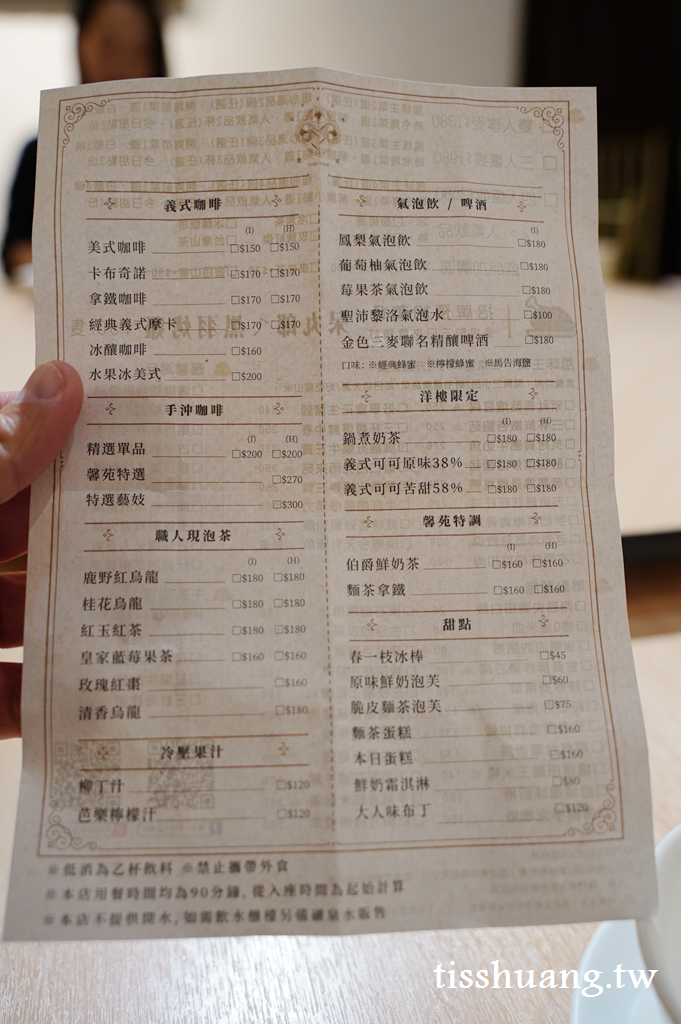 義式咖啡
(I) (H)
美式咖啡 □$150 □$150
卡布奇諾 □$170 □$170
拿鐵咖啡 □$170 □$170
經典義式摩卡 □$170 □$170
冰釀咖啡 □$160
水果冰美式 □$200
手沖咖啡
(I) (H)
精選單品 □$200 □$200
馨苑特選 □$270
特選藝妓 □$300
職人現泡茶
(I) (H)
鹿野紅烏龍 □$180 □$180
桂花烏龍 □$180 □$180
紅玉紅茶 □$180 □$180
皇家藍莓果茶 □$160 □$160
玫瑰紅棗 □$160
清香烏龍 □$180
冷壓果汁
柳丁汁 □$120
芭樂檸檬汁 □$120
氣泡飲 / 啤酒
(I)
鳳梨氣泡飲 □$180
葡萄柚氣泡飲 □$180
莓果茶氣泡飲 □$180
聖沛黎洛氣泡水 □$100
金色三麥聯名精釀啤酒 □$180
口味: ※經典蜂蜜 ※檸檬蜂蜜 ※馬告海鹽
洋樓限定
(I) (H)
鍋煮奶茶 □$180 □$180
義式可可原味38% □$180 □$180
義式可可苦甜58% □$180 □$180
馨苑特調
(I) (H)
伯爵鮮奶茶 □$160 □$160
麵茶拿鐵 □$160 □$160
甜點
春一枝冰棒 □$45
原味鮮奶泡芙 □$60
脆皮麵茶泡芙 □$75
麵茶蛋糕 □$160
本日蛋糕 □$160
鮮奶霜淇淋 □$80
大人味布丁 □$120
※低消為乙杯飲料 ※禁止攜帶外食
※本店用餐時間均為90分鐘, 從入座時間為起始計算
※本店不提供開水, 如需飲水櫃檯另備礦泉水販售
tisshuang.tw